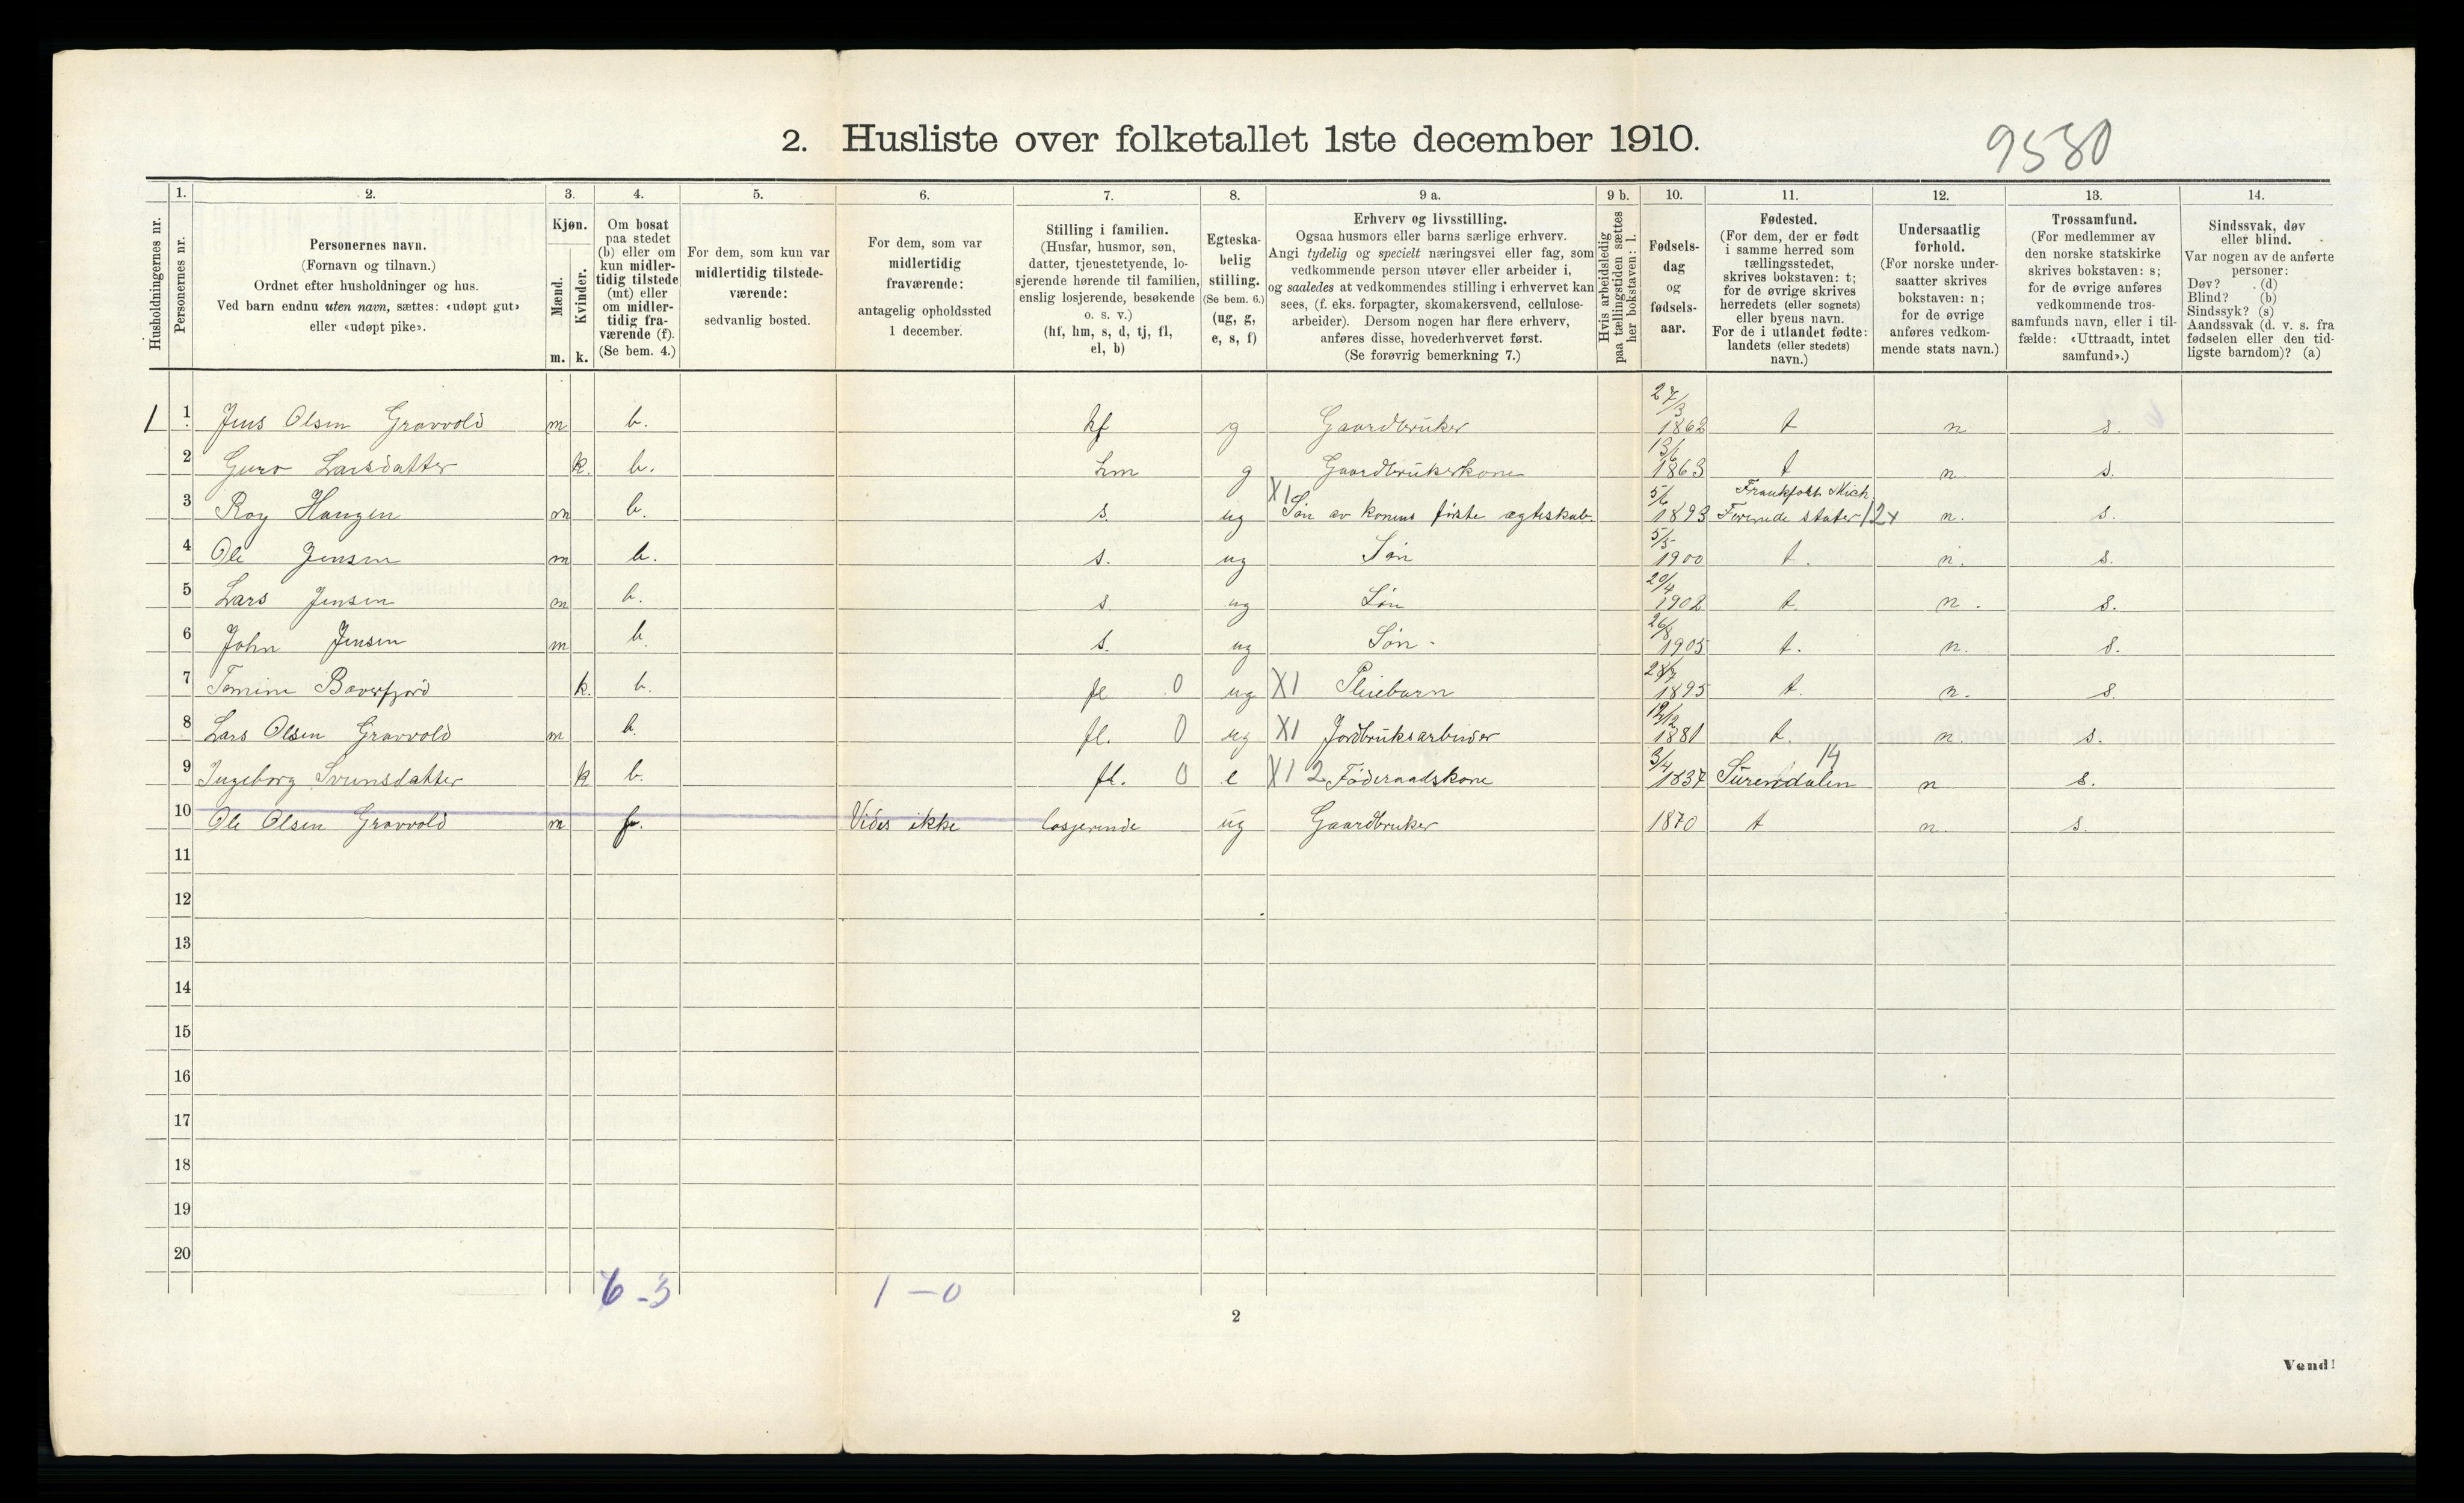 2. Husliste over folketallet 1ste december 1910.
9580
Husholdningernes nr.
1.
Personernes nr.
2.
Personernes navn.
(Fornavn og tilnavn.)
Ordnet efter husholdninger og hus.
Ved barn endnu uten navn, sættes: «udøpt gut»
eller «udøpt pike».
3.
Kjøn.
Mænd.
m.
Kvinder.
k.
4.
Om bosat
paa stedet
(b) eller om
kun midler-
tidig tilstede
(mt) eller
om midler-
tidig fra-
værende (f).
(Se bem. 4.)
5.
For dem, som kun var
midlertidig tilstede-
værende:
sedvanlig bosted.
6.
For dem, som var
midlertidig
fraværende:
antagelig opholdssted
1 december.
7.
Stilling i familien.
(Husfar, husmor, søn,
datter, tjenestetyende, lo-
sjerende hørende til familien,
enslig losjerende, besøkende
o. s. v.)
(hf, hm, s, d, tj, fl,
el, b)
8.
Egteska-
belig
stilling.
(Se bem. 6.)
(ug, g,
e, s, f)
9 a.
Erhverv og livsstilling.
Ogsaa husmors eller barns særlige erhverv.
Angi tydelig og specielt næringsvei eller fag, som
vedkommende person utøver eller arbeider i,
og saaledes at vedkommendes stilling i erhvervet kan
sees, (f. eks. forpagter, skomakersvend, cellulose-
arbeider). Dersom nogen har flere erhverv,
anføres disse, hovederhvervet først.
(Se forøvrig bemerkning 7.)
9 b.
Hvis arbeidsledig
paa tællingstiden sættes
her bokstaven: l.
10.
Fødsels-
dag
og
fødsels-
aar.
11.
Fødested.
(For dem, der er født
i samme herred som
tællingsstedet,
skrives bokstaven: t;
for de øvrige skrives
herredets (eller sognets)
eller byens navn.
For de i utlandet fødte:
landets (eller stedets)
navn.)
12.
Undersaatlig
forhold.
(For norske under-
saatter skrives
bokstaven: n;
for de øvrige
anføres vedkom-
mende stats navn.)
13.
Trossamfund.
(For medlemmer av
den norske statskirke
skrives bokstaven: s;
for de øvrige anføres
vedkommende tros-
samfunds navn, eller i til-
fælde: «Uttraadt, intet
samfund».)
14.
Sindssvak, døv
eller blind.
Var nogen av de anførte
personer:
Døv? (d)
Blind? (b)
Sindssyk? (s)
Aandssvak (d. v. s. fra
fødselen eller den tid-
ligste barndom)? (a)
1 1 Jens Olsen Gravvold m b. hf g Gaardbruker 27/3 1862 t n s.
2 Guro Larsdatter k. b. hm g Gaardbrukerkone 13/6 1863 t n. s.
3 Roy Haugen m b. s. ug X1 Søn av konens første ægteskab. 5/6 1893 Frankfort Mich. Forenede stater 12x n. s.
4 Ole Jensen m b. s. ug Søn 5/5 1900 t. n. s.
5 Lars Jensen m b. s ug Søn 20/4 1902 t. n. s.
6 John Jensen m b. s. ug Søn. 26/8 1905 t. n. s.
7 Tomine Bøverfjord k. b. fl 0 ug X1 Pleiebarn 1895 t. n. s.
8 Lars Olsen Gravvold m b. fl. 0 ug X1 Jordbruksarbeider 12/12 1881 t. n. s.
9 Ingeborg Svensdatter k b. fl. 0 e X1 2 Føderaadskone 3/4 1837 Surendalen 14 n s.
10 Ole Olsen Gravvold m f. Vides ikke losjerende ug Gaardbruker 1870 t n. s.
11
12
13
14
15
16
17
18
19
20
6-3 1-0
2
Vend!